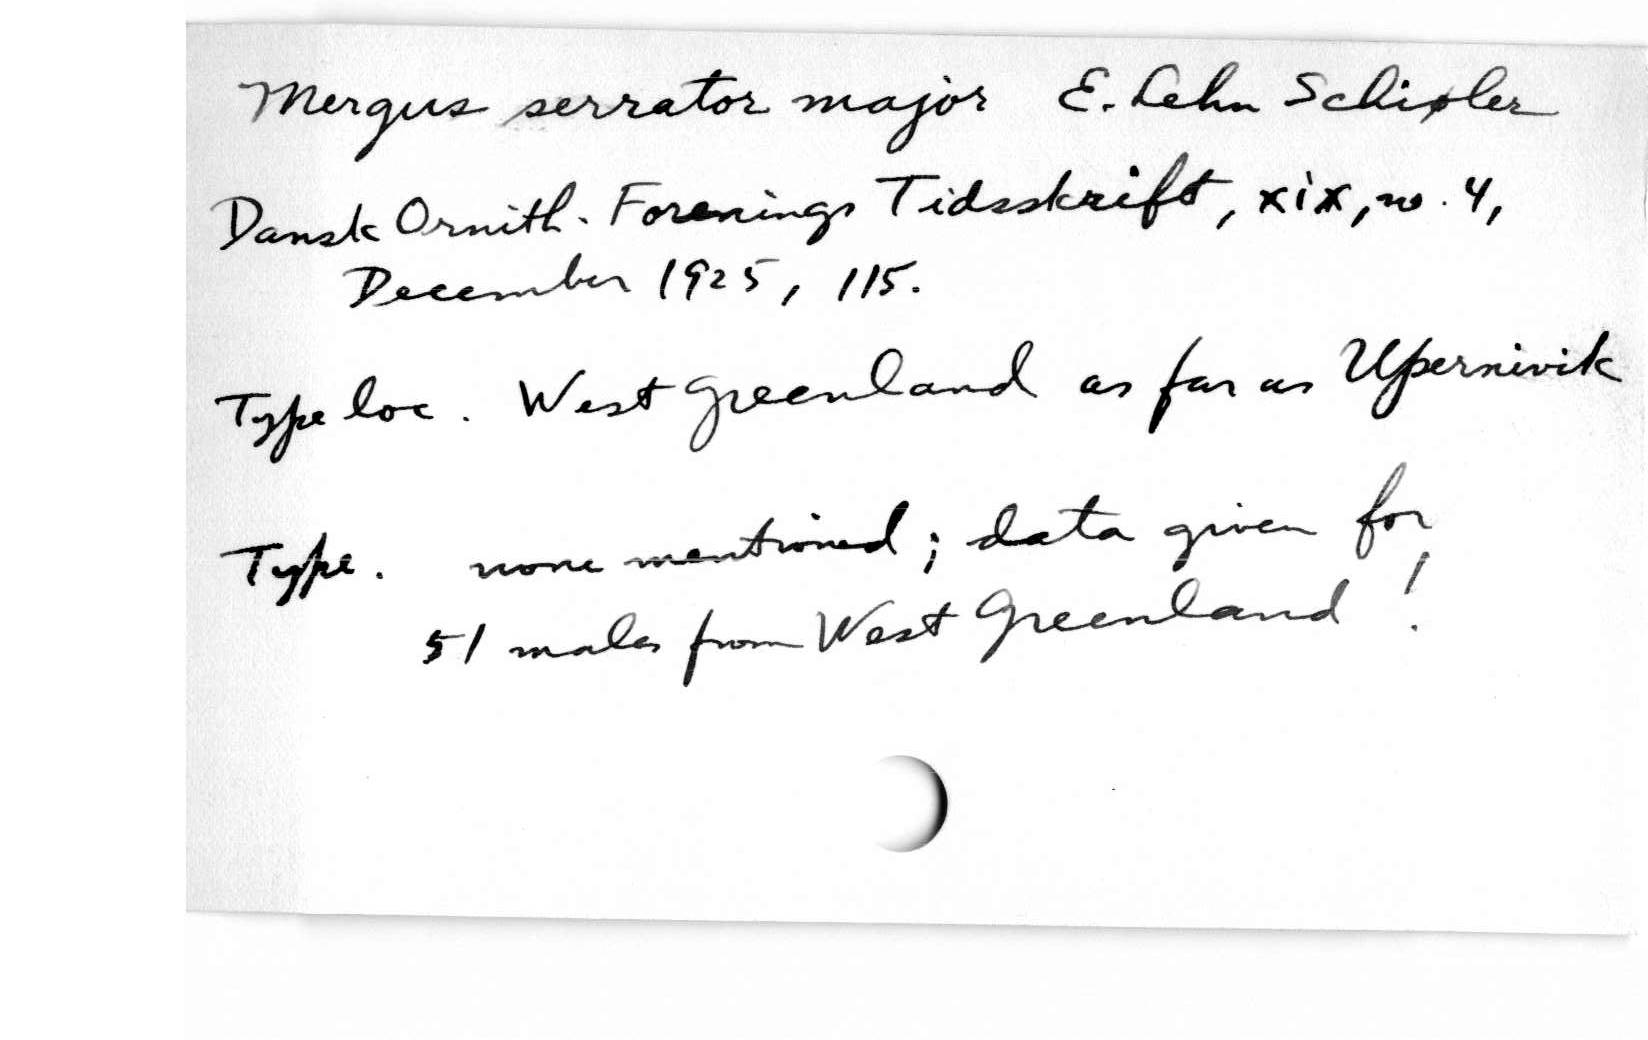 Mergus serrator major E. Lehn Schiøler
Dansk Ornith. Forenings Tidsskrift, xix, no. 4,
December 1925, 115.
Type loc. West Greenland as far as Upernivik
Type. none mentioned; data given for
51 males from West Greenland!